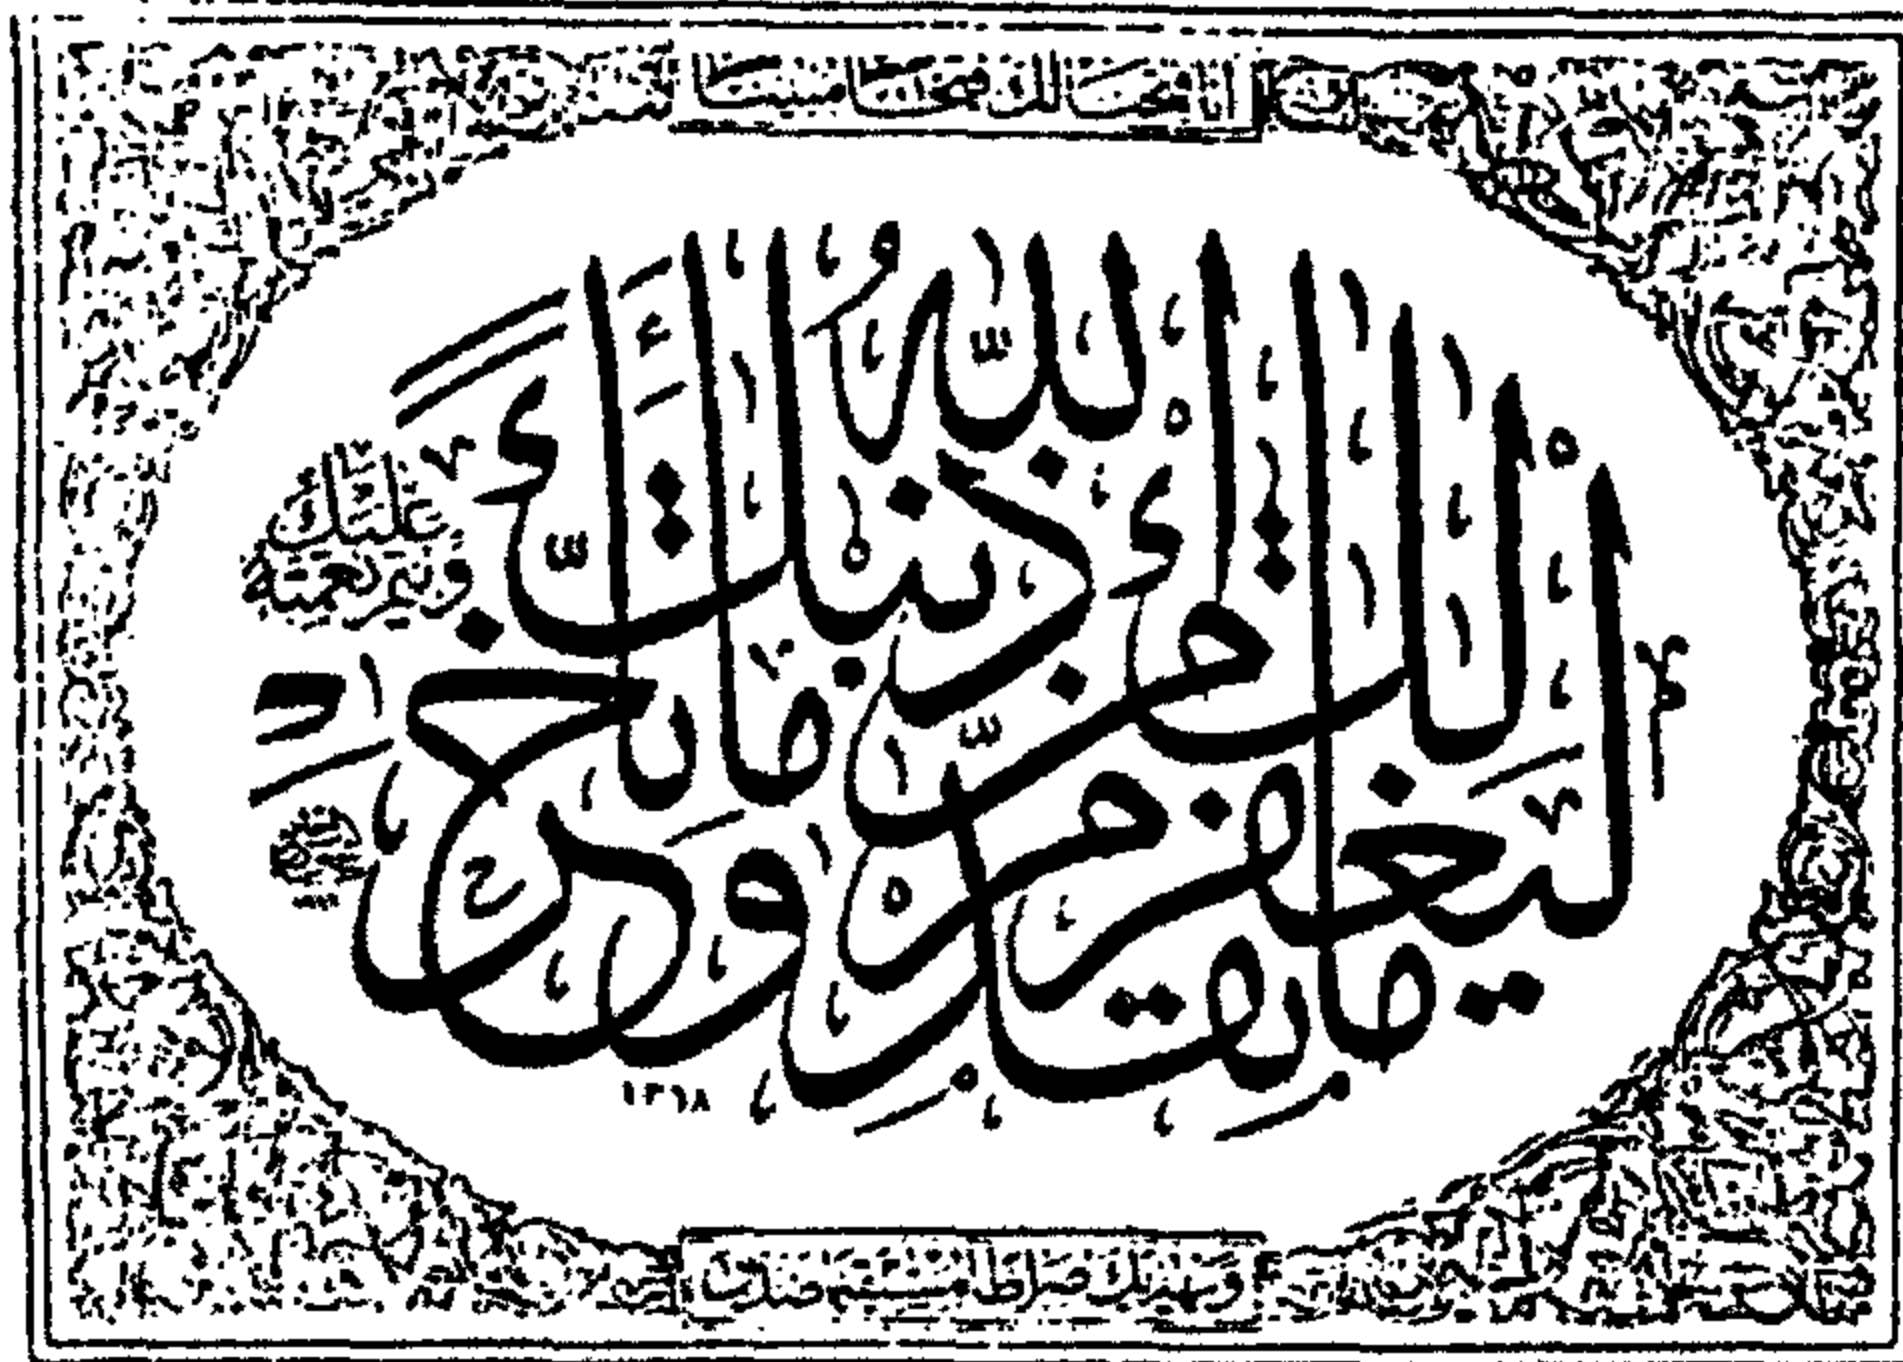 إنا فتحنا لك فتحا مبينا
ليغفر لك الله ما تقدم من ذنبك وما تأخر
ويتم نعمته
عليك
١٣٦٨
ويهديك صراطا مستقيما